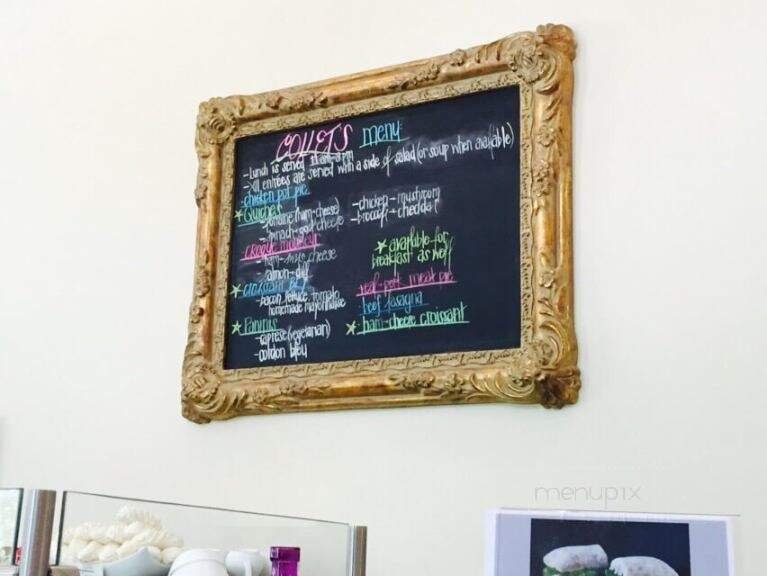 COLLETS menu
- Lunch is served 11am-3pm
- All entrees are served with a side of salad (or soup when available)
chicken pot pie
★ Quiches
- lorraine (ham-cheese)
- spinach-goat cheese
- chicken-mushroom
- broccoli-cheddar
croque monsieur
- ham-swiss cheese
- salmon-dill
★ croissant BLT
- bacon, lettuce, tomato
homemade mayonnaise
★ Paninis
- caprese (vegetarian)
- cordon bleu
★ available for
breakfast as well
veal-pork meat pie
beef lasagna
★ ham-cheese croissant
menupix